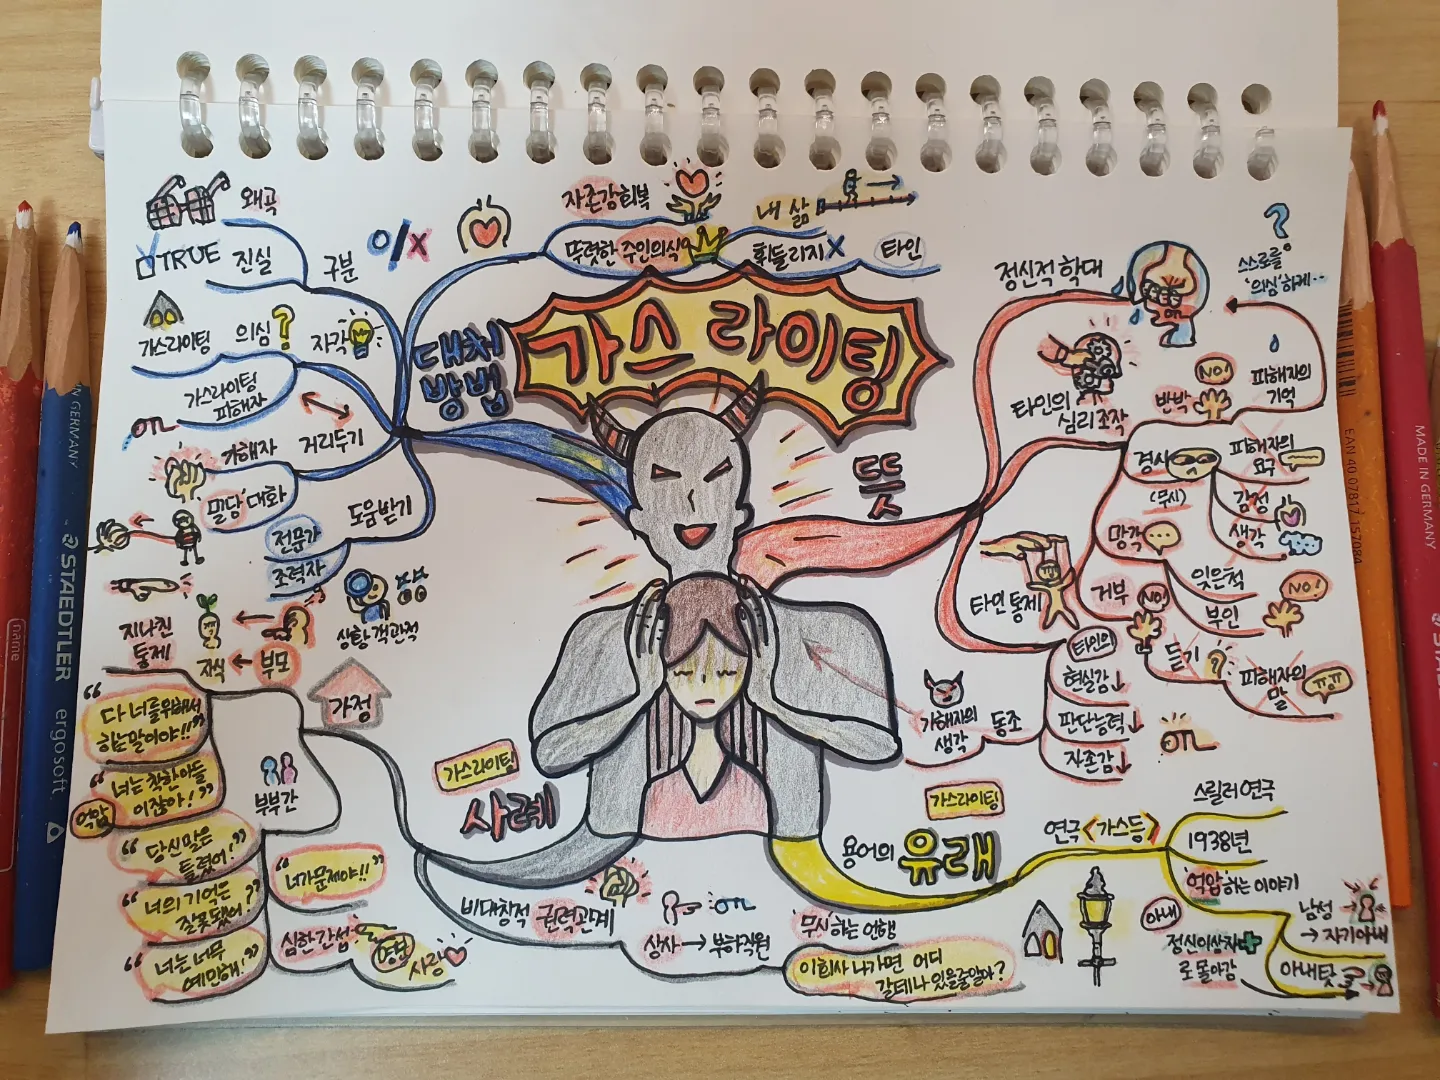 가스라이팅
대처
방법
왜곡
TRUE
진실
구분
O/X
가스라이팅
의심?
자각
가스라이팅
피해자
가해자
거리두기
밀당 대화
전문가
조력자
도움받기
상황 객관적
자존감 회복
뚜렷한 주인의식
내 삶
휘둘리지 X
타인
뜻
정신적 학대
?
스스로를
'의심'하게··
피해자의
기억
타인의
심리 조작
반박
NO!
경시
(무시)
피해자의
욕구
감정
생각
망각
잊은 척
부인
NO!
거부
NO!
듣기
피해자의
말
ㅠㅠ
타인 통제
타인의
현실감↓
판단능력↓
자존감↓
동조
가해자의
생각
가스라이팅
사례
가정
지나친
통제
자식
부모
"다 너를 위해서
하는말이야!!"
"너는 착한아들
이잖아!"
억압
부부간
"당신말은
틀렸어!"
"너의 기억은
잘못됐어?"
"너는 너무
예민해!"
"너가 문제야!!"
심한 간섭
명분
사랑
비대칭적 권력관계
상사→부하직원
'무시'하는 언행
이 회사 나가면 어디
갈데나 있을줄알아?
가스라이팅
용어의 유래
연극 <가스등>
스릴러 연극
1938년
'억압'하는 이야기
아내
정신이상자
로 몰아감
남성
→자기아내
아내탓
STAEDTLER
ergosoft.
IN GERMANY
name
EAN 40 07817 157084
MADE IN GERMANY